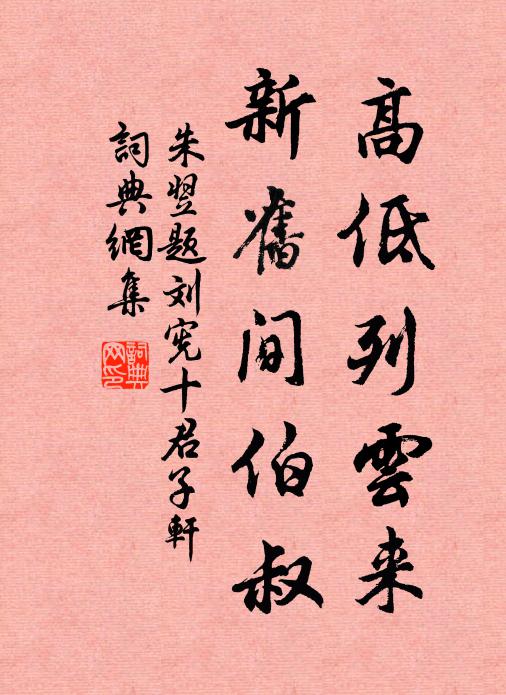 高低列雲来
新舊间伯叔
朱翌题刘宪十君子軒
詞典網集
詞典网印